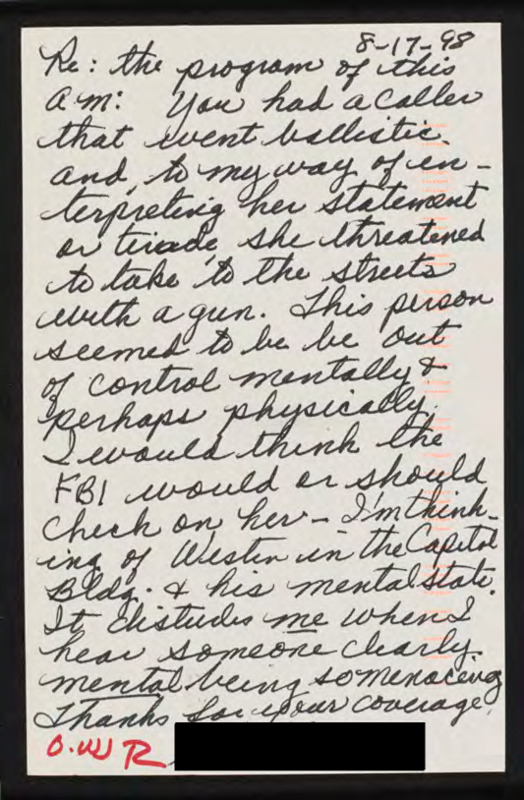 8-17-98
Re: the program of this
a.m: You had a caller
that went ballistic
and, to my way of en-
terpreting her statement
or tirade, she threatened
to take to the streets
with a gun. This person
seemed to be be out
of control mentally &
perhaps physically.
I would think the
FBI would or should
check on her - I'm think-
ing of Westin in the Capitol
Bldg. & his mental state.
It disturbs me when I
hear someone clearly
mental being so menacing
Thanks for your coverage.
O.W R.